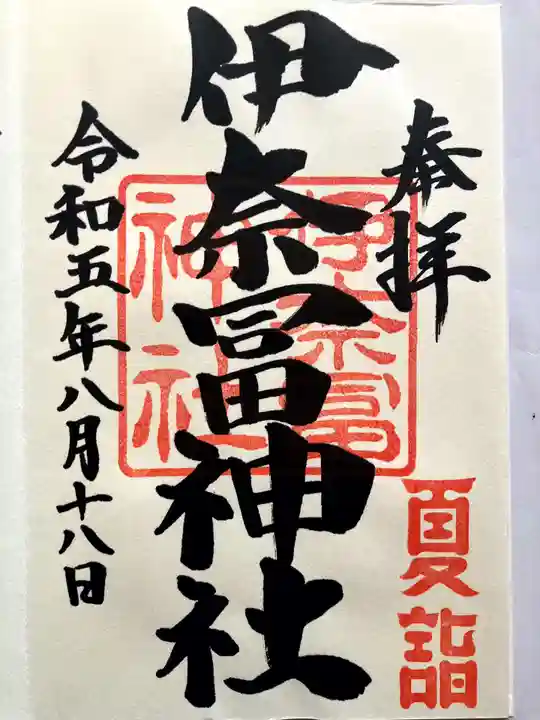 奉拝
夏詣
伊奈冨神社
伊奈冨
神社
令和五年八月十八日